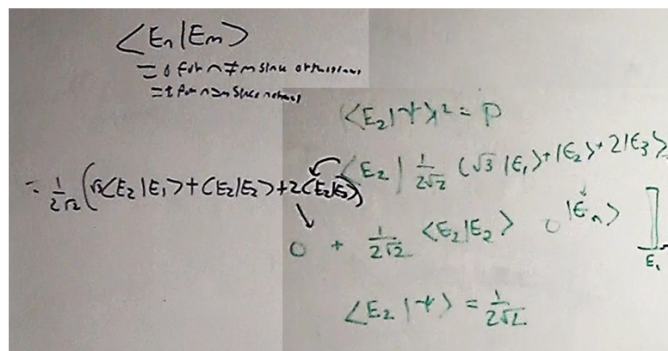 ⟨En|Em⟩
= 0 for n≠m since
= 1 for n=m since
⟨E₂|ψ⟩² = P
⟨E₂| 1/2√2 (√3 |E₁⟩ + |E₂⟩ + 2|E₃⟩)
= 1/2√2 (√3⟨E₂|E₁⟩ + ⟨E₂|E₂⟩ + 2⟨E₂|E₃⟩)
0 + 1/2√2 ⟨E₂|E₂⟩ 0 |En⟩
E₁
⟨E₂|ψ⟩ = 1/2√2